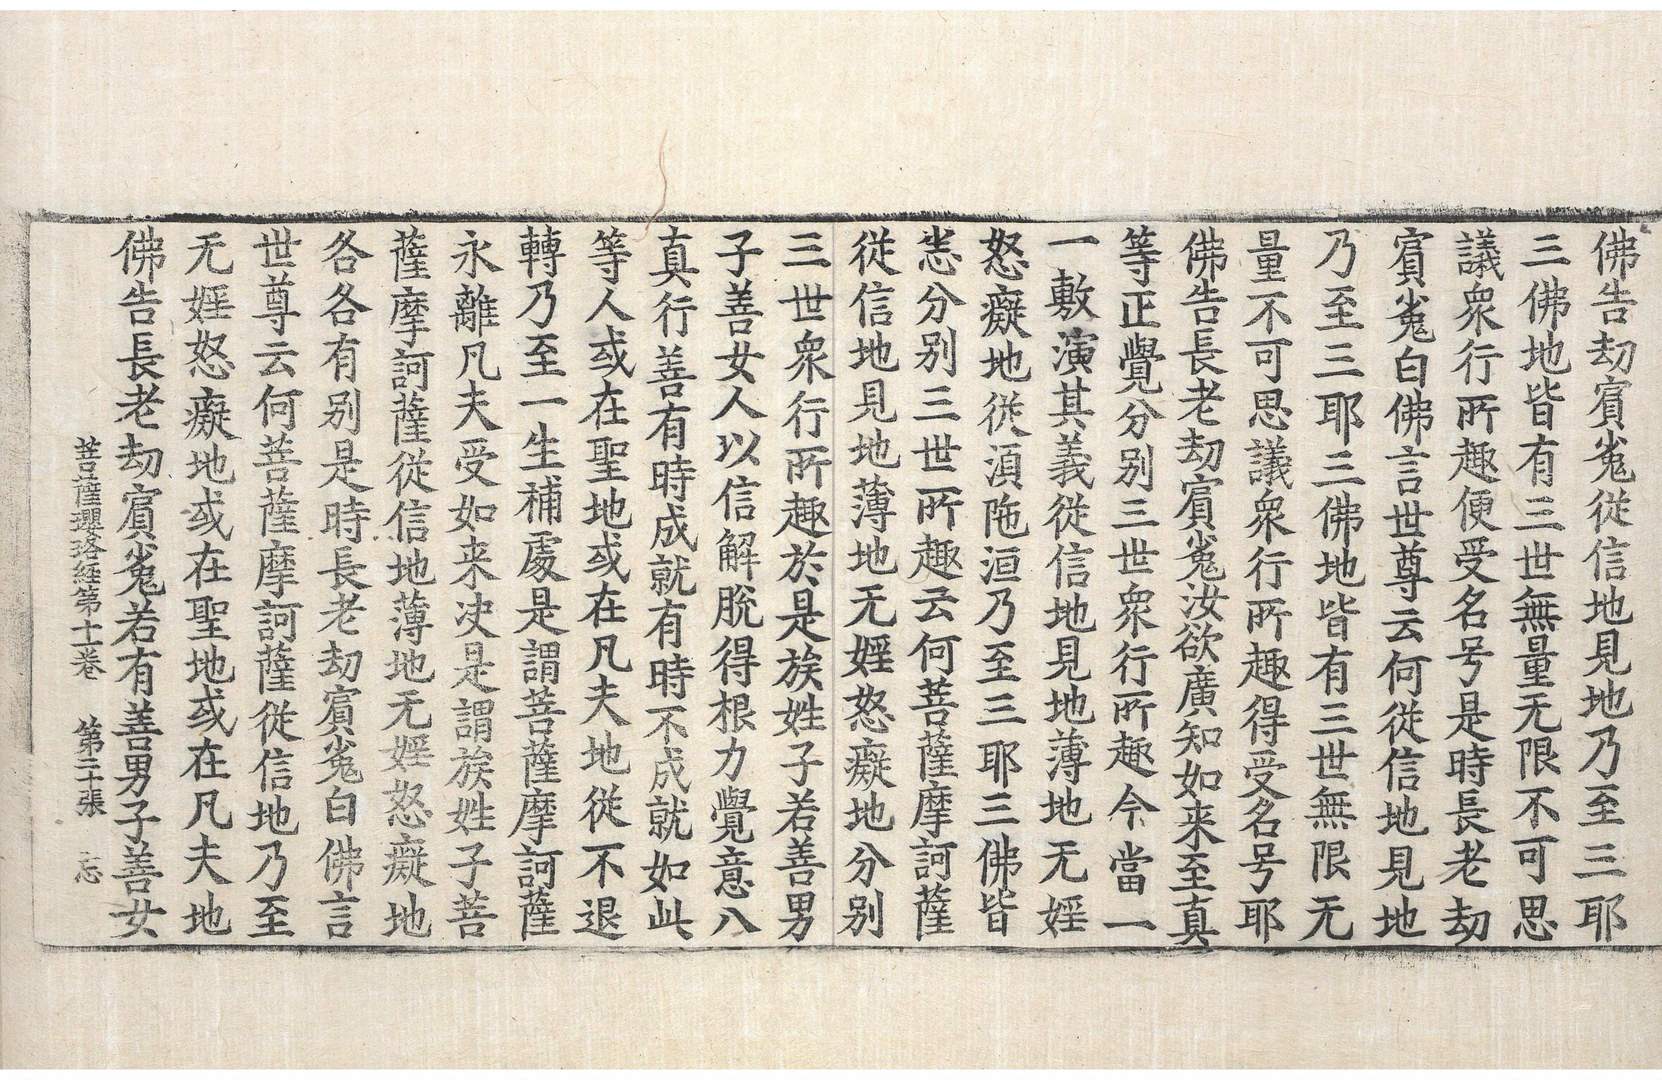 佛告劫賔㝹從信地見地乃至三耶
三佛地皆有三世無量无限不可思
議衆行所趣便受名号是時長老劫
賔㝹白佛言世尊云何從信地見地
乃至三耶三佛地皆有三世無限无
量不可思議衆行所趣得受名号耶
佛告長老劫賔㝹汝欲廣知如来至真
等正覺分别三世衆行所趣今當一
一敷演其義從信地見地薄地无婬
怒癡地從湏陁洹乃至三耶三佛皆
悉分别三世所趣云何菩薩摩訶薩
從信地見地薄地无婬怒癡地分别
三世衆行所趣於是族姓子若善男
子善女人以信解脫得根力覺意八
真行善有時成就有時不成就如此
等人或在聖地或在凡夫地從不退
轉乃至一生補處是謂菩薩摩訶薩
永離凡夫受如来决是謂族姓子菩
薩摩訶薩從信地薄地无婬怒癡地
各各有别是時長老劫賔㝹白佛言
世尊云何菩薩摩訶薩從信地乃至
无婬怒癡地或在聖地或在凡夫地
佛告長老劫賔㝹若有善男子善女
菩薩瓔珞経第十一卷　第二十張　忘